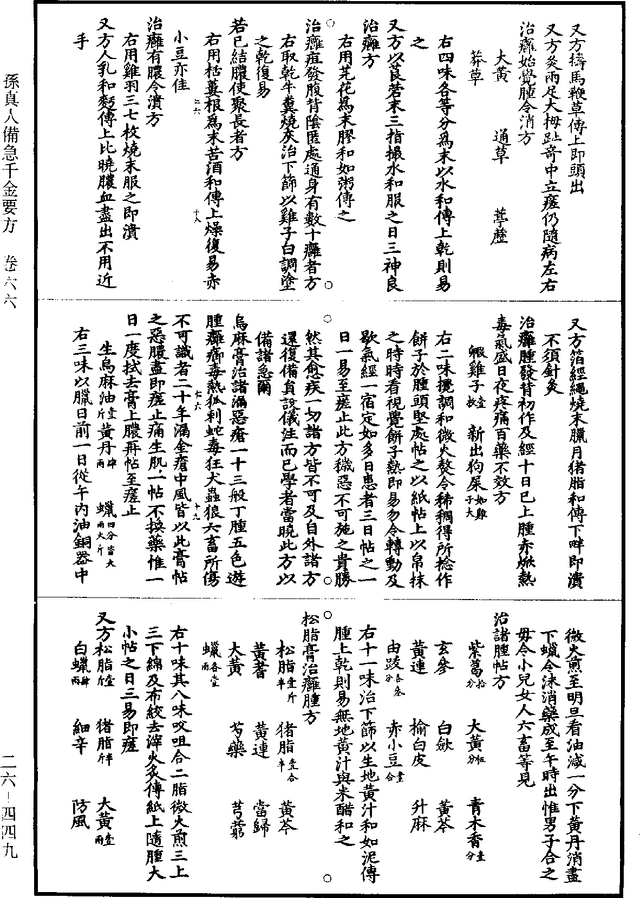 孫真人備急千金要方　卷六六
二六－四四九
又方擣馬鞭草傅上即頭出
又方灸兩足大拇趾奇中立瘥仍隨病左右
治癰始覺腫令消方
大黃　通草　葶藶
莽草
右四味各等分爲末以水和傅上乾則易
之
又方以莨菪末三指撮水和服之日三神良
治癰方
右用芫花爲末膠和如粥傅之
治癰疽發腹背陰匿處通身有數十癰者方
右取乾牛糞燒灰治下篩以雞子白調塗
之乾復易
若已結膿使聚長者方
右用栝蔞根爲末苦酒和傅上燥復易赤
小豆亦佳
治癰有膿令潰方
右用雞羽三七枚燒末服之即潰
又方人乳和麫傅上比曉膿血盡出不用近
手
又方箔經繩燒末臘月猪脂和傅下畔即潰
不須針灸
治癰腫發背初作及經十日已上腫赤焮熱
毒氣盛日夜疼痛百藥不效方
毈雞子一枚　新出狗屎如雞子大
右二味攪調和微火熬令稀稠得所捻作
餅子於腫頭堅處帖之以紙帖上以帛抹
之時時看視覺餅子熱即易勿令轉動及
歇氣經一宿定如多日患者三日帖之一
日一易至瘥止此方穢惡不可施之貴勝
然其愈疾一切諸方皆不可及自外諸方
還復備員設儀注而已學者當曉此方以
備諸急爾
烏麻膏治諸漏惡瘡一十三般丁腫五色遊
腫癰癤毒熱狐刺蛇毒狂犬蟲狼六畜所傷
不可識者二十年漏金瘡中風皆以此膏帖
之惡膿盡即瘥止痛生肌一帖不換藥惟一
日一度拭去膏上膿再帖至瘥止
生烏麻油壹斤　黃丹肆兩　蠟四分
右三味以臘日前一日從午內油銅器中
微火煎至明旦看油減一分下黃丹消盡
下蠟令沫消藥成至午時出惟男子合之
毋令小兒女人六畜等見
治諸腫帖方
紫葛　大黃　青木香
玄參　白歛　黃芩
黃連　榆白皮　升麻
由跋　赤小豆
右十一味冶下篩以生地黃汁和如泥傅
腫上乾則易無地黃汁與米醋和之
松脂膏治癰腫方
松脂　猪脂　黃芩
黃蓍　黃連　當歸
大黃　芍藥　芎藭
蠟
右十味其八味㕮咀合二脂微火煎三上
三下綿及布絞去滓火炙傅紙上隨腫大
小帖之日三易即瘥
又方松脂　猪脂　大黃
白蠟　細辛　防風